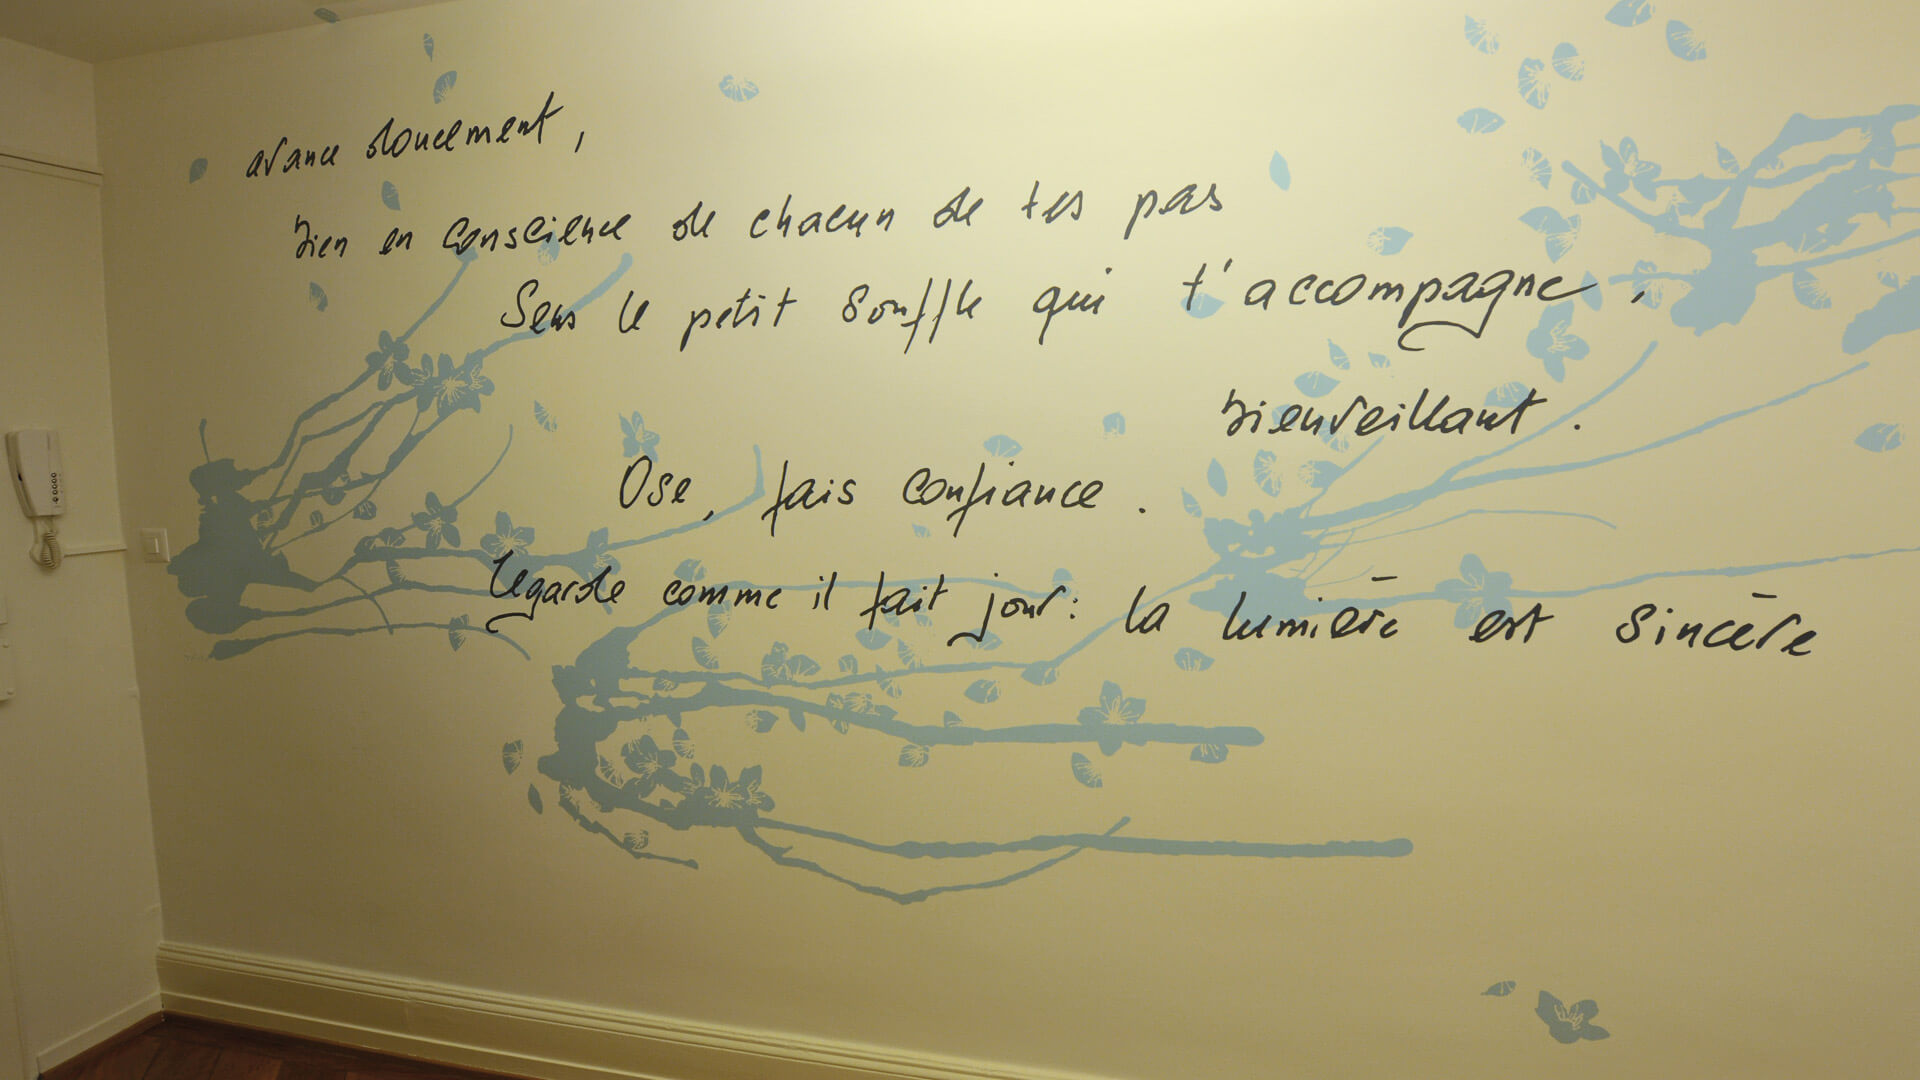 avance doucement,
bien en conscience de chacun de tes pas
Sens le petit souffle qui t'accompagne,
bienveillant.
Ose, fais confiance.
Regarde comme il fait jour: la lumière est sincère